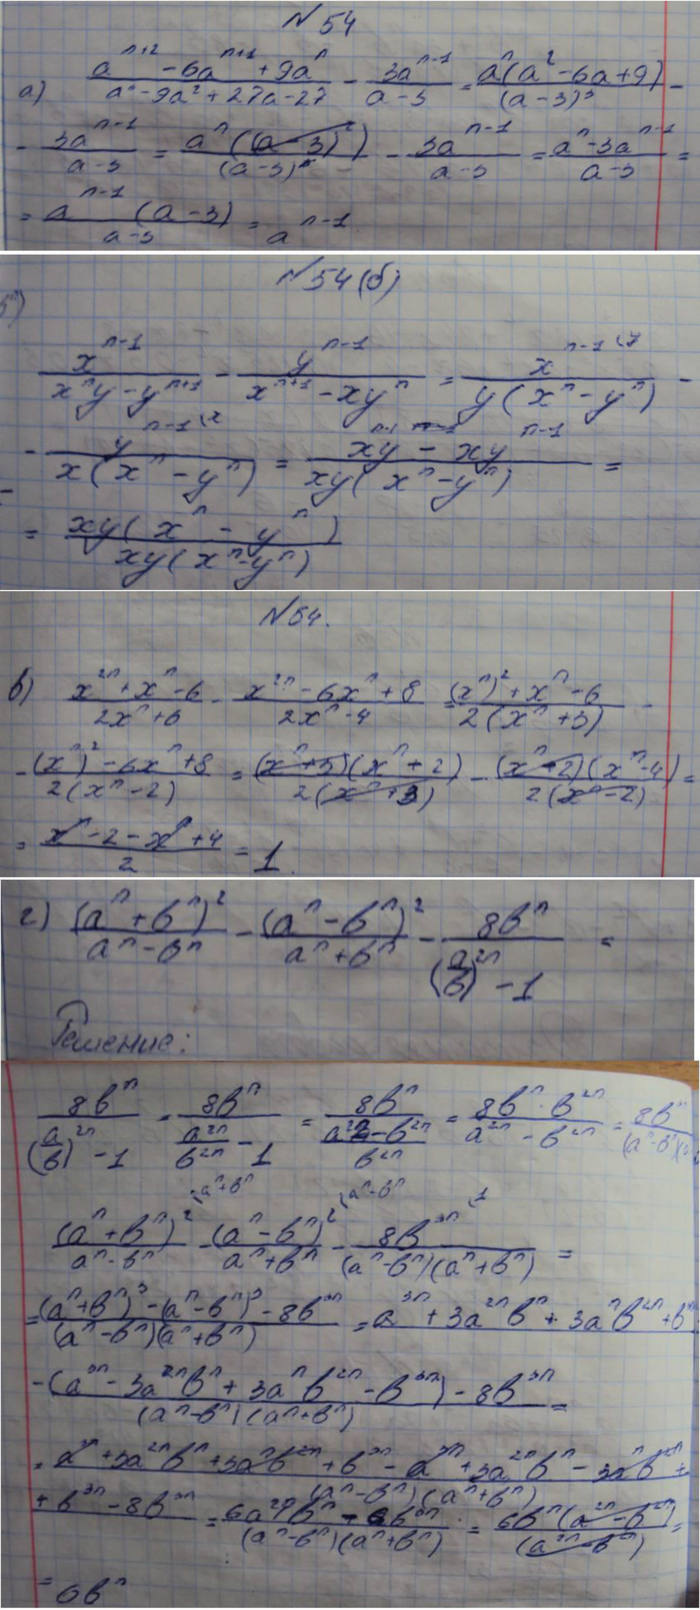 №54
а) (a^(n+2) - 6a^(n+1) + 9a^n)/(a^3 - 9a^2 + 27a - 27) - 3a^(n-1)/(a-3) = a^n(a^2 - 6a + 9)/(a-3)^3 -
- 3a^(n-1)/(a-3) = a^n((a-3)^2)/(a-3)^3 - 3a^(n-1)/(a-3) = (a^n - 3a^(n-1))/(a-3) =
= a^(n-1)(a-3)/(a-3) = a^(n-1)
№54(б)
б) x^(n-1)/(x^n y - y^(n+1)) - y^(n-1)/(x^(n+1) - xy^n) = x^(n-1)/(y(x^n - y^n)) -
- y^(n-1)/(x(x^n - y^n)) = (xy - xy^(n-1))/(xy(x^n - y^n)) =
= xy(x^n - y^n)/(xy(x^n - y^n))
№54.
в) (x^(2n) + x^n - 6)/(2x^n + 6) - (x^(2n) - 6x^n + 8)/(2x^n - 4) = ((x^n)^2 + x^n - 6)/(2(x^n + 3)) -
- ((x^n)^2 - 6x^n + 8)/(2(x^n - 2)) = (x^n + 3)(x^n + 2)/(2(x^n + 3)) - (x^n - 2)(x^n - 4)/(2(x^n - 2)) =
= (x^n - 2 - x^n + 4)/2 = 1.
г) (a^n + b^n)^2/(a^n - b^n) - (a^n - b^n)^2/(a^n + b^n) - 8b^n/((a/b)^(2n) - 1) =
Решение:
8b^n/((a/b)^(2n) - 1) = 8b^n/(a^(2n)/b^(2n) - 1) = 8b^n/((a^(2n) - b^(2n))/b^(2n)) = 8b^n · b^(2n)/(a^(2n) - b^(2n)) = 8b
(a^n + b^n)^2/(a^n - b^n) - (a^n - b^n)^2/(a^n + b^n) - 8b^(3n)/((a^n - b^n)(a^n + b^n)) =
= ((a^n + b^n)^3 - (a^n - b^n)^3 - 8b^(3n))/((a^n - b^n)(a^n + b^n)) = a^(3n) + 3a^(2n)b^n + 3a^n b^(2n) + b
- (a^(3n) - 3a^(2n)b^n + 3a^n b^(2n) - b^(3n)) - 8b^(3n)/((a^n - b^n)(a^n + b^n)) =
= a^(3n) + 3a^(2n)b^n + 3a^n b^(2n) + b^(3n) - a^(3n) + 3a^(2n)b^n - 3a^n b^(2n) +/((a^n - b^n)(a^n + b^n))
+ b^(3n) - 8b^(3n) = (6a^(2n)b^n - 6b^(3n))/((a^n - b^n)(a^n + b^n)) = 6b^n(a^(2n) - b^(2n))/(a^(2n) - b^(2n)) =
= 6b^n